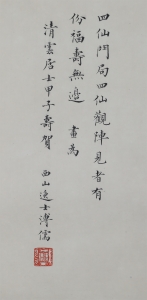 四仙鬥局四仙觀陣見者有
份福壽無邊 畫為
清雲居士甲子壽賀
西山逸士溥儒